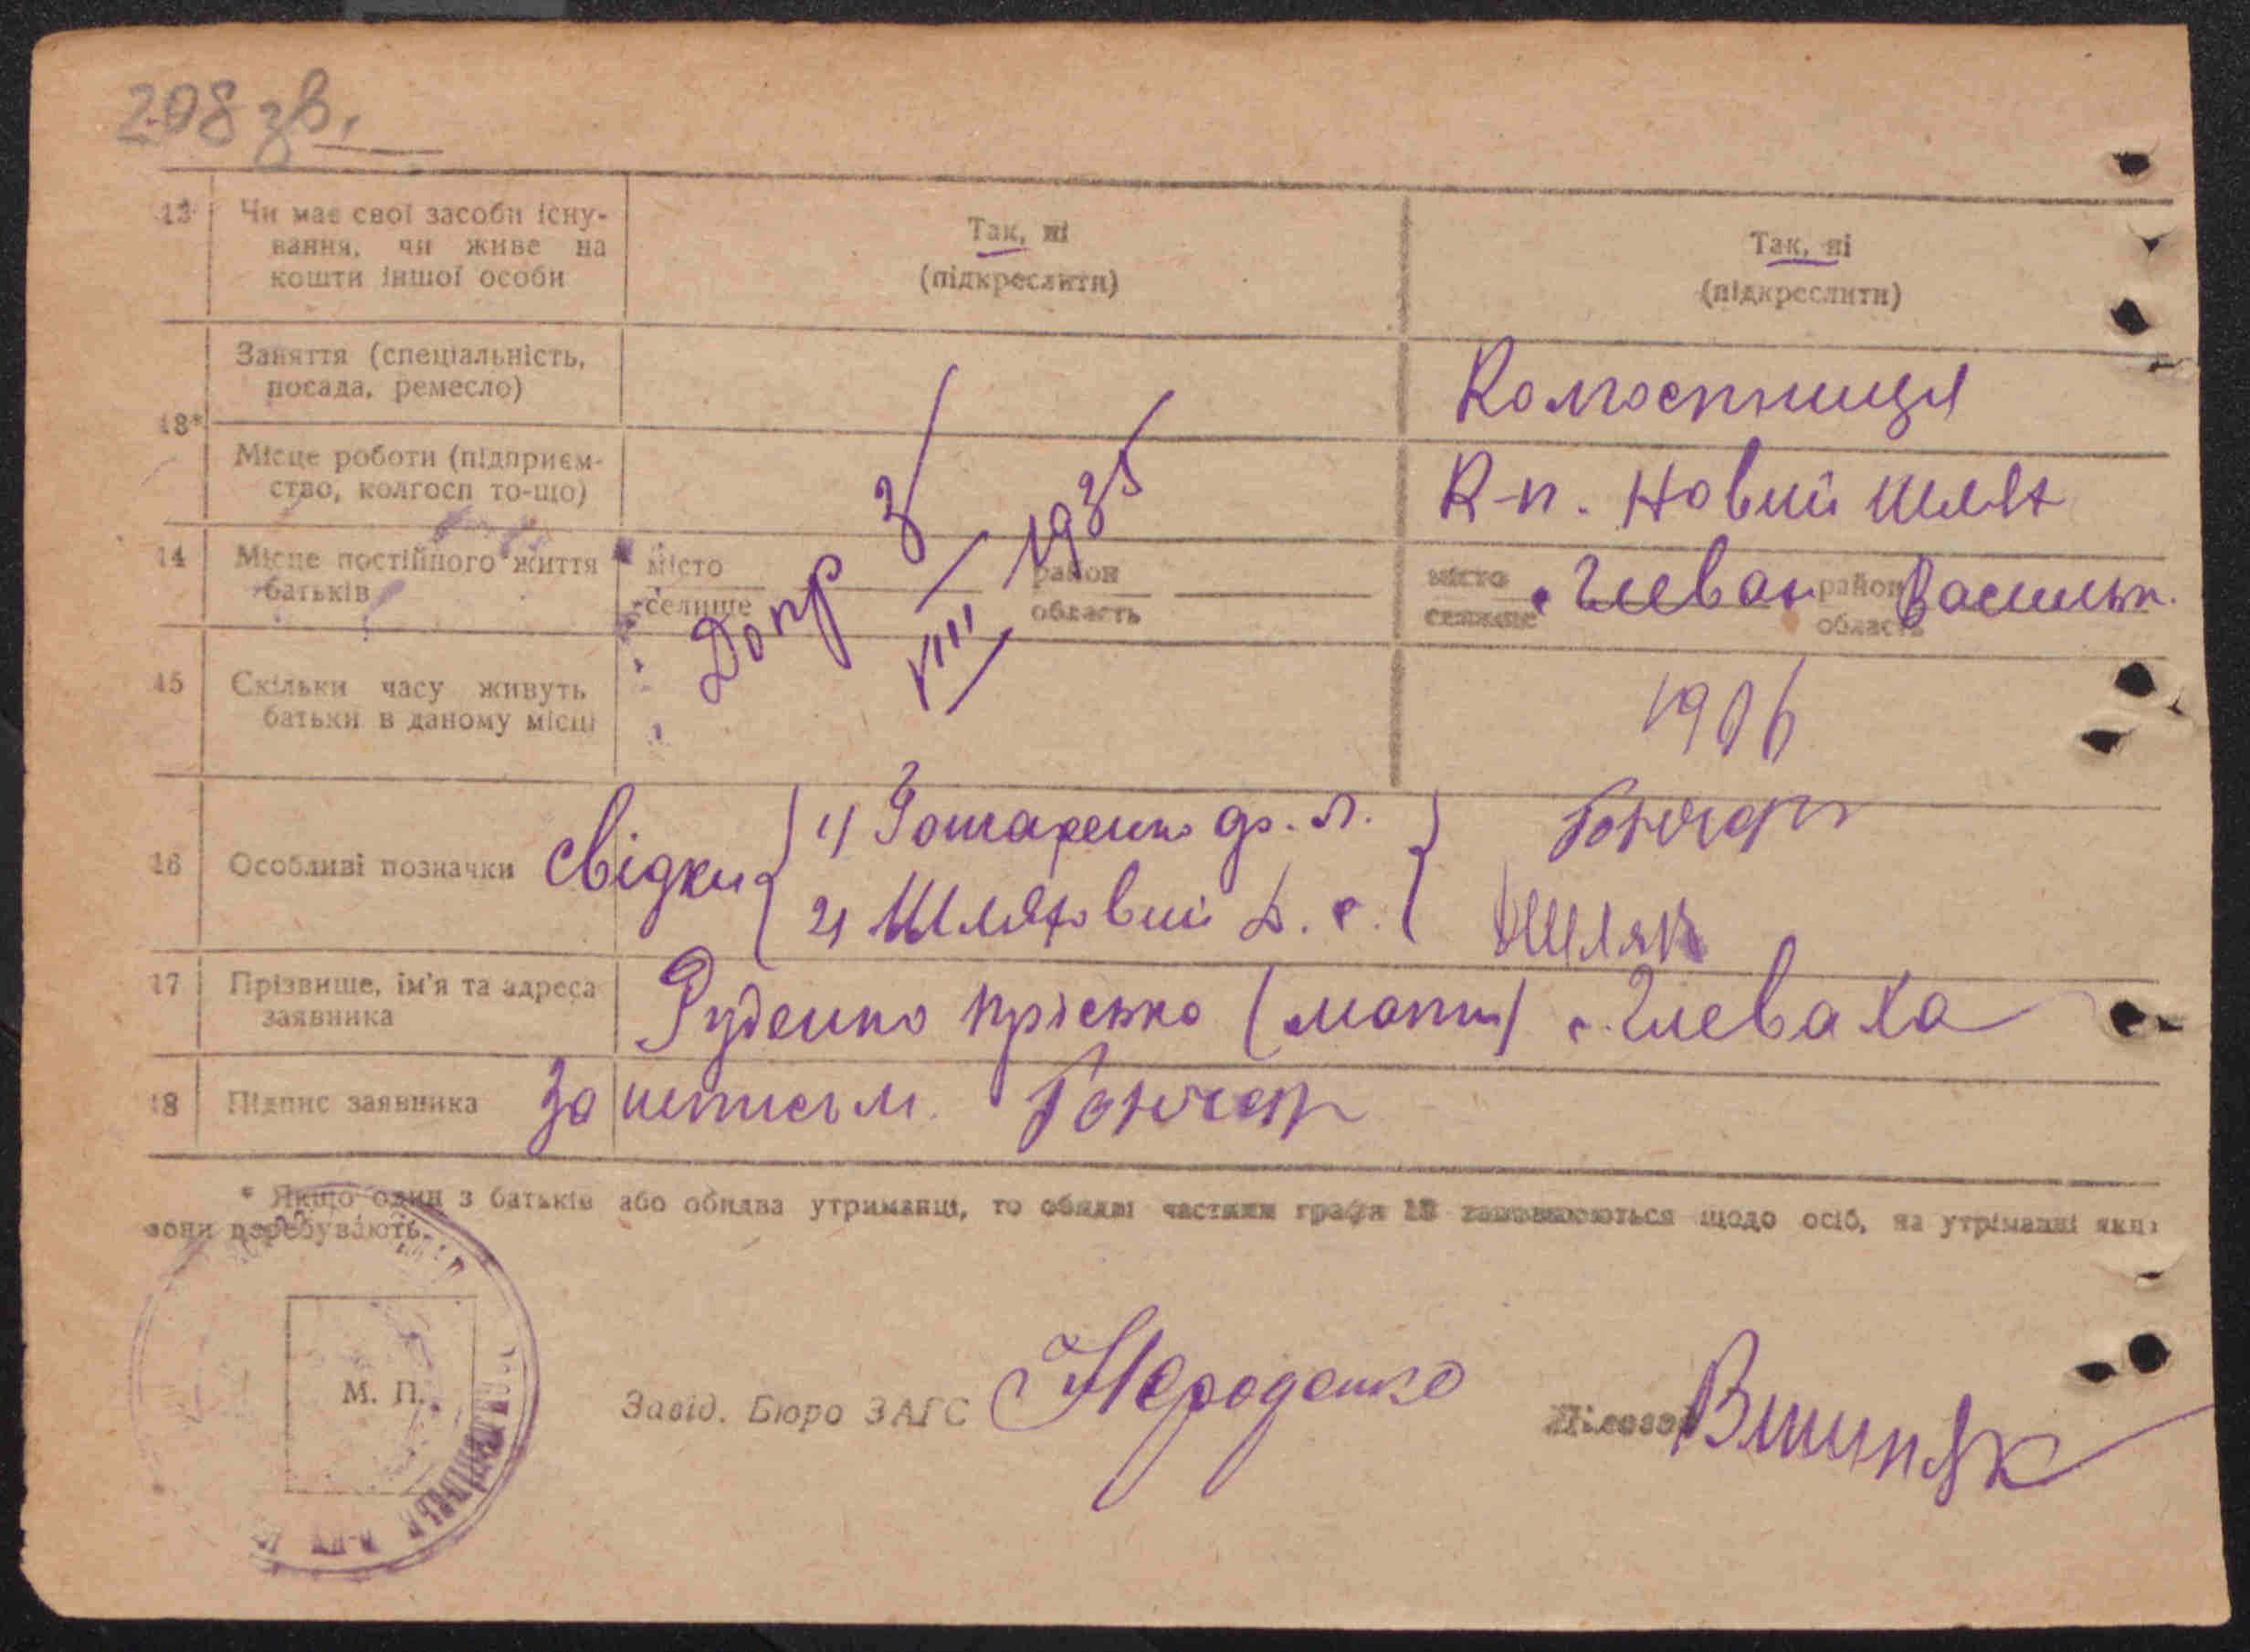 208 зв.
13 Чи має свої засоби існу-
вання, чи живе на
кошти іншої особи
Так, ні
(підкреслити)
Так, ні
(підкреслити)
18*
Заняття (спеціальність,
посада, ремесло)
Колгоспниця
Місце роботи (підприєм-
ство, колгосп то-що)
К-п. Новий Шлях
14 Місце постійного життя
батьків
місто
селище
район
область
місто
селище
с. Глеваха
район
область
Васильк.
Допр 3/VIII 1935
15 Скільки часу живуть
батьки в даному місці
1906
16 Особливі позначки
Свідки
1)
2) Шляховий
Гончар
Шлях
17 Прізвище, ім'я та адреса
заявника
Руденко Пріська (мати) с. Глеваха
18 Підпис заявника
За неписьм. Гончар
* Якщо один з батьків або обидва утриманці, то обидві частини графи 13 заповнюються щодо осіб, на утриманні яких
вони перебувають.
М. П.
Завід. Бюро ЗАГС
Діловод